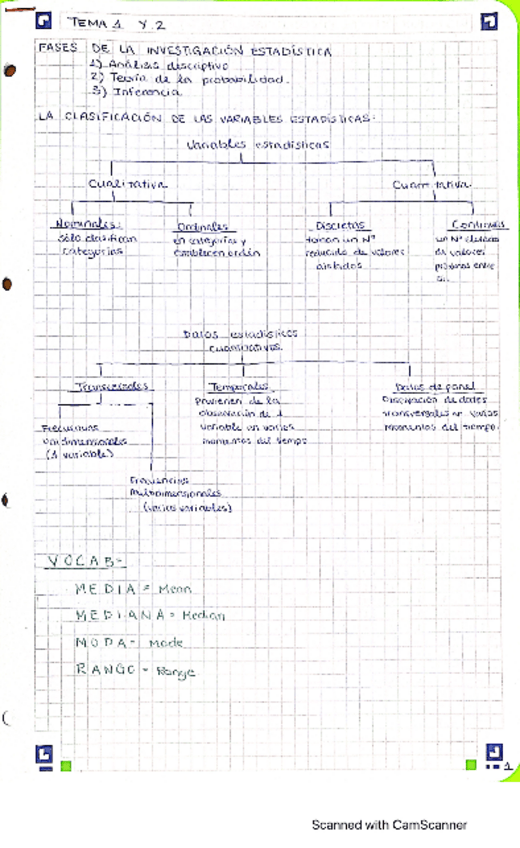 TEMA 1 Y 2
FASES DE LA INVESTIGACIÓN ESTADÍSTICA
1) Análisis descriptivo
2) Teoría de la probabilidad.
3) Inferencia
LA CLASIFICACIÓN DE LAS VARIABLES ESTADÍSTICAS.
Variables estadísticas
Cualitativa
Cuantitativa
Nominales:
sólo clasifican
categorías
Ordinales
en categorías y
establecen orden
Discretas
toman un Nº
reducido de valores
aislados
Continuas
un Nº elevado
de valores
próximos entre
Datos estadísticos
cuantitativos
Transversales
Temporales
Provienen de la
observación de 1
variable en varios
momentos del tiempo
Datos de panel
Observación de datos
transversales en varios
momentos del tiempo.
Frecuencias
unidimensionales
(1 variable)
Frecuencias
Multidimensionales
(varias variables)
VOCAB-
MEDIA = Mean
MEDIANA = Median
MODA - Mode
RANGO - Range
1
Scanned with CamScanner